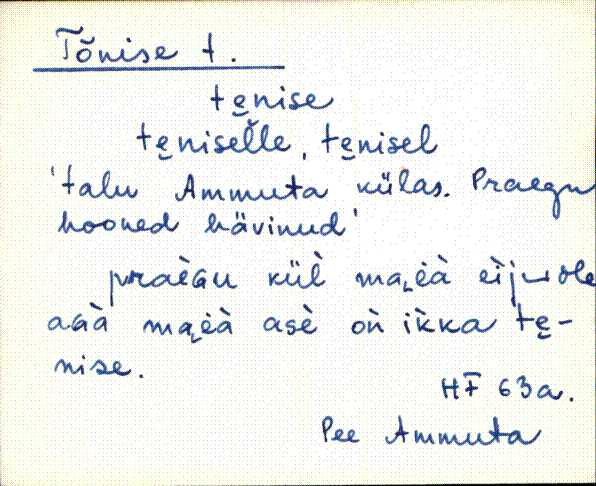 Tõnise t.
te̮nise
te̮niselle, te̮nisel
'talu Ammuta külas. Praegu
hooned hävinud'
praèGu kül̀ ma i̯ -ole
aGà asè oǹ ìkka te̮-
nise.
HF 63a.
Pee Ammuta